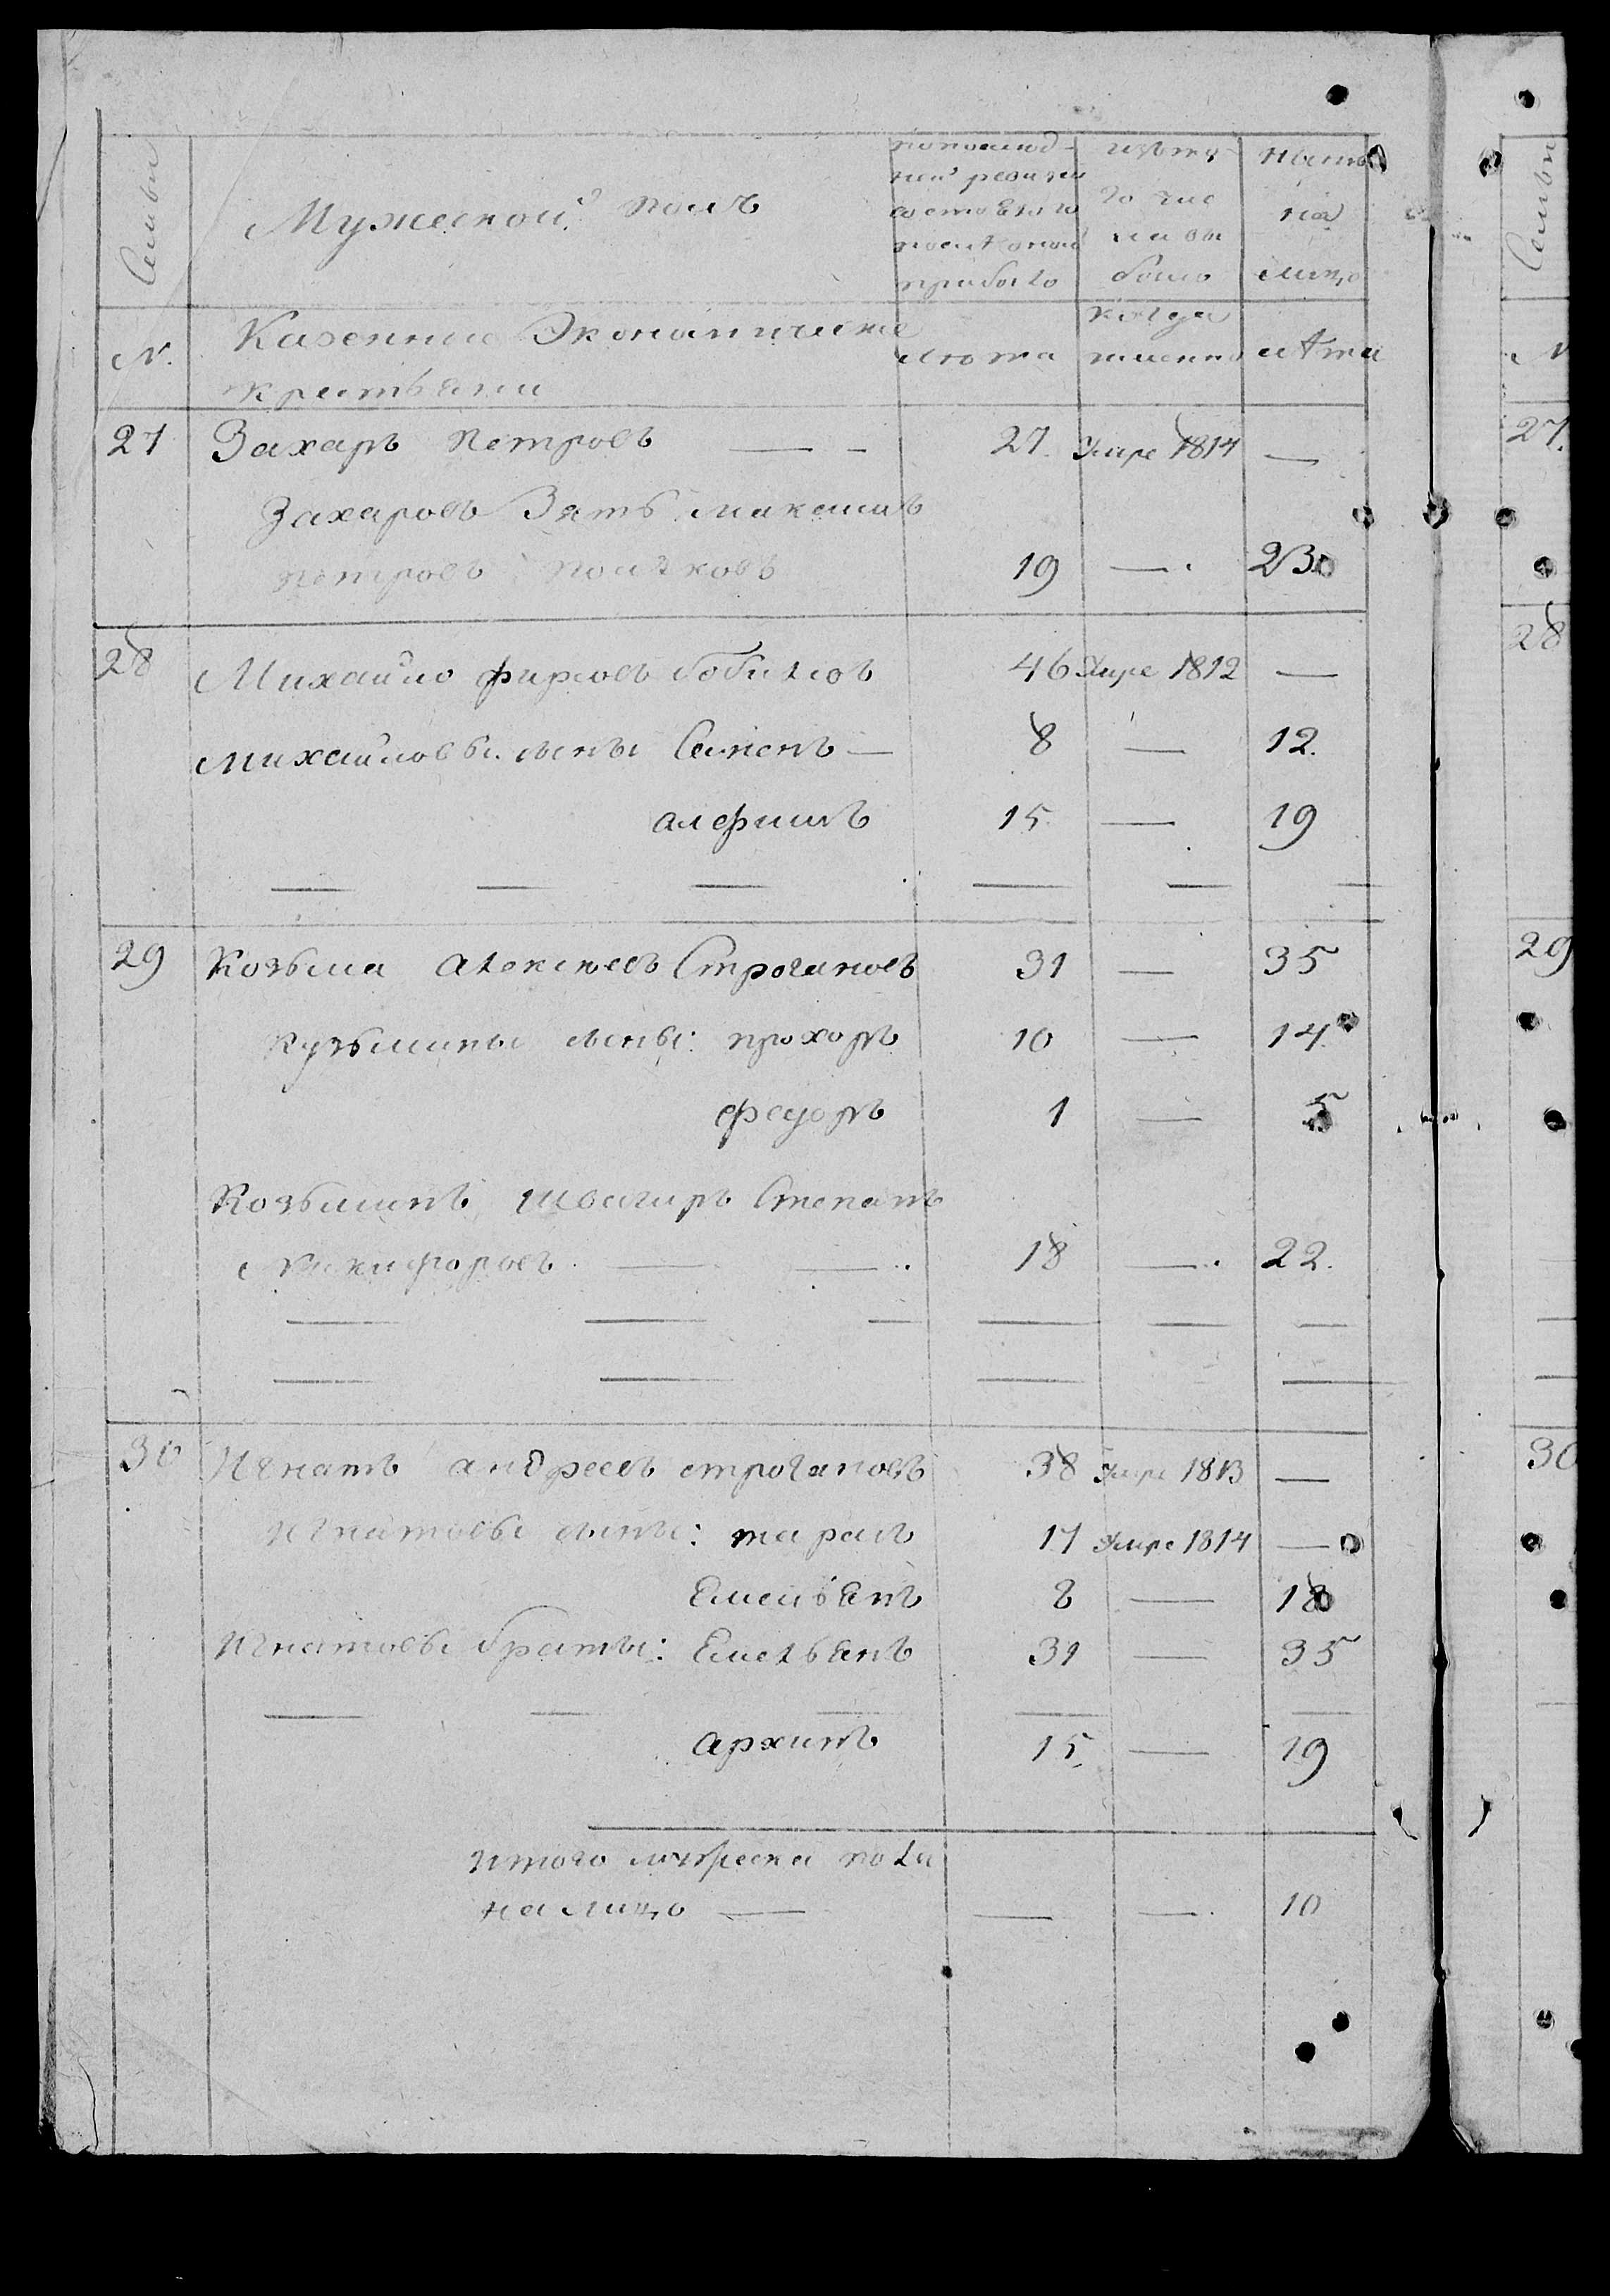 Семьи
Мужеской полъ
по послед-
ней ревизии
состояло
и после оной
прибыло
изъ то
го чис
ла вы
было
ныне
на
лицо
N.
Казенные Экономические
крестьяни
лета
когда
имянно
лета
27 Захаръ Петровъ — - 27. Умре 1814 —
Захаровъ Зять максимъ
петровъ 19 — 23
28 Михайло фирсовъ 46 Умре 1812 —
Михайловы сыны Семенъ — 8 — 12.
алефимъ 15 — 19
29 Козьма алексеевъ Строгановъ 31 — 35
кузьмины сыны: прохоръ 10 — 14
федоръ 1 — 5
Козьминъ швагиръ Степанъ
Никифоровъ 18 — 22.
30 Игнатъ андреевъ строгановъ 38 Умре 1813 —
Игнатовы сыны: тарасъ 17 Умре 1814 —
Емельянъ 8 — 18
Игнатовы браты: Емельянъ 31 — 35
архипъ 15. — 19
итого мужеска пола
на лицо — — — 10
Семьи
N
27.
28
29
30